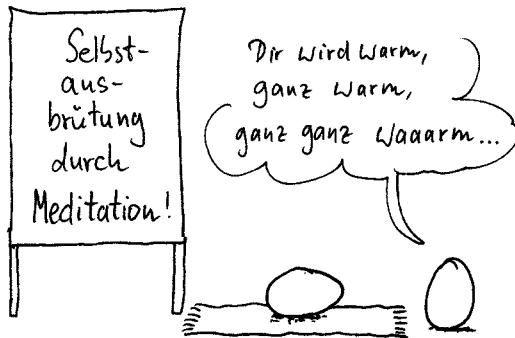 Selbst-
aus-
brütung
durch
Meditation!
Dir wird warm,
ganz warm,
ganz ganz waaarm...